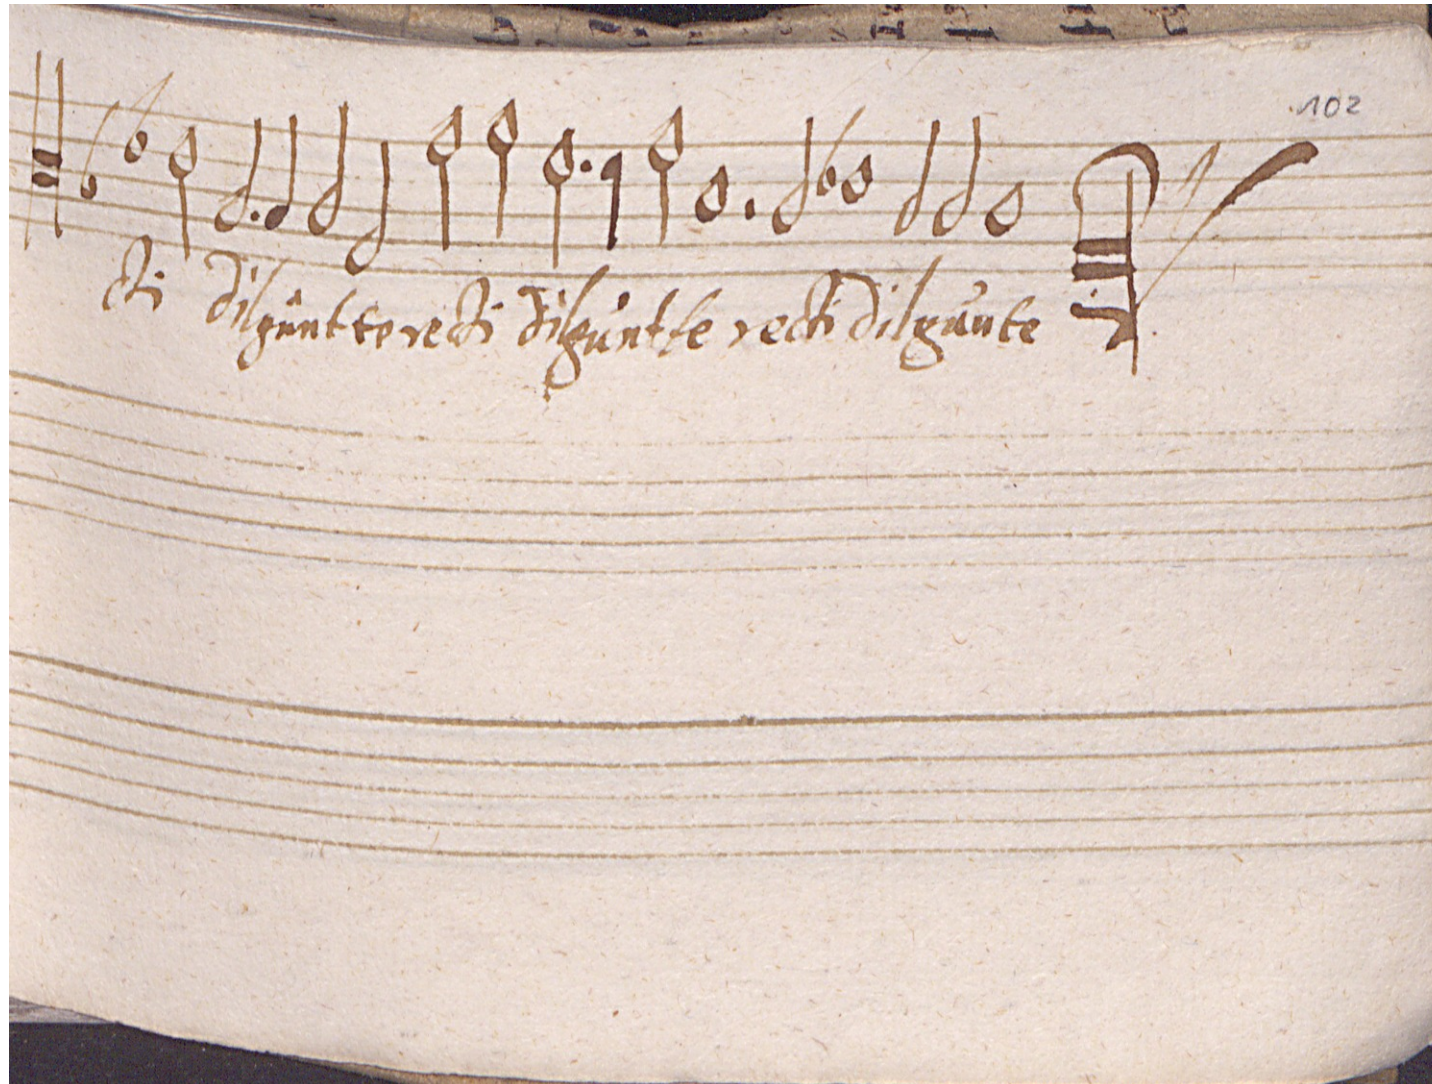 102
cti dilgunt te recti dilgunt te recti dilgunte